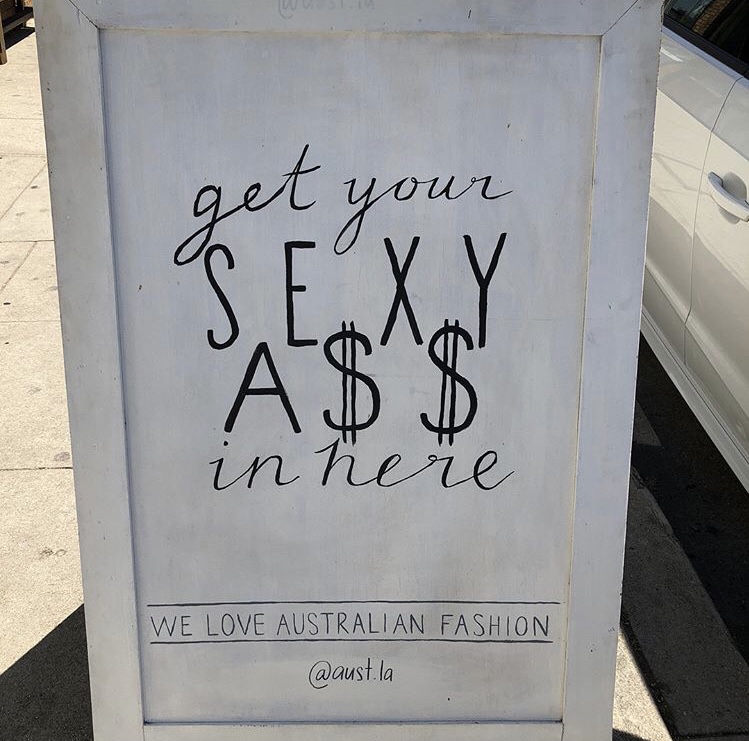 @aust.la
get your
SEXY
A$$
in here
WE LOVE AUSTRALIAN FASHION
@aust.la